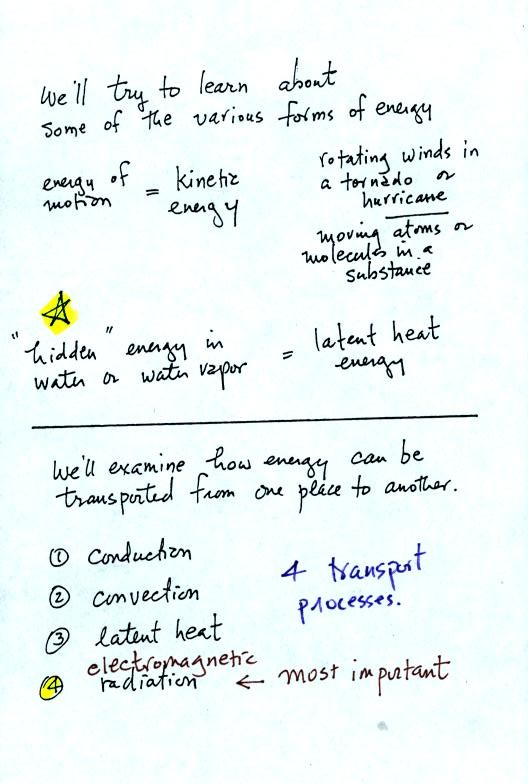 We'll try to learn about
some of the various forms of energy
energy of
motion
= kinetic
energy
rotating winds in
a tornado or
hurricane
moving atoms or
molecules in a
substance
"hidden" energy in
water or water vapor
= latent heat
energy
We'll examine how energy can be
transported from one place to another.
① conduction
② convection
③ latent heat
④ electromagnetic
radiation ← most important
4 transport
processes.